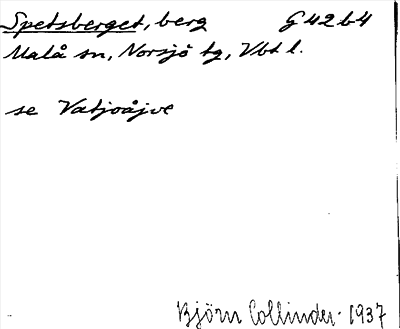 Spetsberget, berg G 42 b 4
Malå sn, Norsjö tg, Vbt l.
se Vatjoåjve
Björn Collinder. 1937